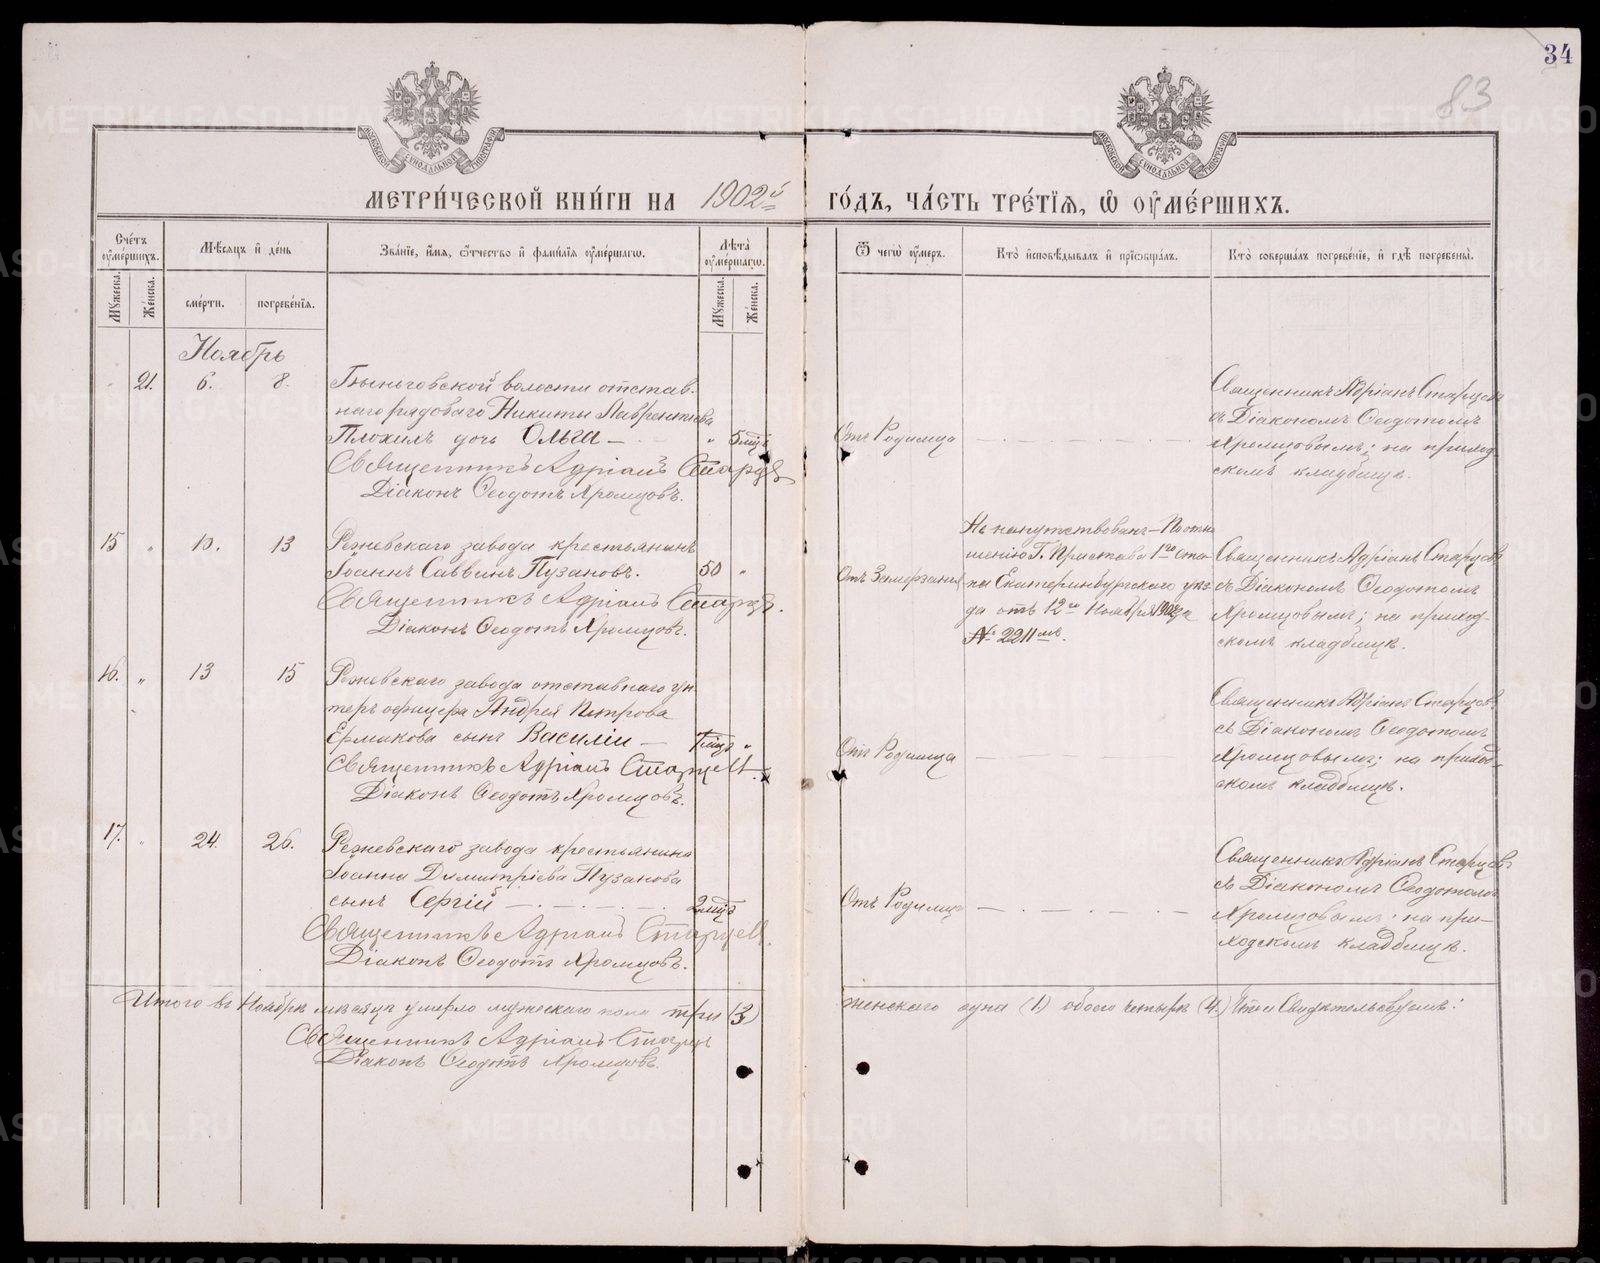 34
83
МОСКОВСКОЙ СѴНОДАЛЬНОЙ ТИПОГРАФІИ
МОСКОВСКОЙ СѴНОДАЛЬНОЙ ТИПОГРАФІИ
МЕТРИ́ЧЕСКОЙ КНИ́ГИ НА 1902й ГО́ДЪ, ЧА́СТЬ ТРЕ́ТІЯ, Ѡ ОУМЕ́РШИХЪ.
Сче́тъ оуме́ршихъ.
Мѣ́сяцъ и де́нь
Зва́ніе, и́мя, о́тчество и фами́лія оуме́ршагѡ.
Лѣта̀ оуме́ршагѡ.
Ѿ чегѡ̀ оу́меръ.
Кто̀ и҆сповѣ́дывалъ и҆ прїѡбща́лъ.
Кто̀ соверша́лъ погребе́ніе, и҆ гдѣ̀ погребены̀.
Мꙋ́жеска.
Же́нска.
сме́рти.
погребе́нїя.
Мꙋ́жеска.
Же́нска.
Ноябрь
21. 6. 8. Глинской волости отстав-
наго рядоваго Никиты Лаврентіева
Плохихъ дочь Ольга — " 5 мц.
Священникъ Адріанъ Старцевъ
Діаконъ Ѳеодотъ Хромцовъ.
Отъ Родимца
Священникъ Адріанъ Старцевъ
съ Діакономъ Ѳеодотомъ
Хромцовымъ; на приход-
скомъ кладбищѣ.
15 " 10. 13 Режевскаго завода крестьянинъ
Іоаннъ Саввинъ Пузановъ. 50 "
Священникъ Адріанъ Старцевъ.
Діаконъ Ѳеодотъ Хромцовъ.
Отъ Замерзанія
Не напутствованъ — По отно
шенію Г. Пристава 1го ста-
на Екатеринбургскаго уѣз-
да отъ 12го Ноября 1902 года
№ 2211мъ.
Священникъ Адріанъ Старцевъ
съ Діакономъ Ѳеодотомъ
Хромцовымъ; на приход-
скомъ кладбищѣ.
16. " 13 15 Режевскаго завода отставнаго ун-
теръ офицера Андрея Петрова
Ермакова сынъ Василій — 7 мцъ "
Священникъ Адріанъ Старцевъ.
Діаконъ Ѳеодотъ Хромцовъ.
Отъ Родимца
Священникъ Адріанъ Старцевъ
съ Діакономъ Ѳеодотомъ
Хромцовымъ; на приход-
скомъ кладбищѣ.
17. " 24. 26. Режевскаго завода крестьянина
Іоанна Димитріева Пузанова
сынъ Сергій — 2 мцъ
Священникъ Адріанъ Старцевъ.
Діаконъ Ѳеодотъ Хромцовъ.
Отъ Родимца
Священникъ Адріанъ Старцевъ
съ Діакономъ Ѳеодотомъ
Хромцовымъ; на при-
ходскомъ кладбищѣ.
Итого въ Ноябрѣ мѣсяцѣ умерло мужескаго пола три (3) женскаго одна (1.) обоего четыре (4.) Въ семъ Свидѣтельствуемъ:
Священникъ Адріанъ Старцевъ
Діаконъ Ѳеодотъ Хромцовъ.
METRIKI.GASO-URAL.RU